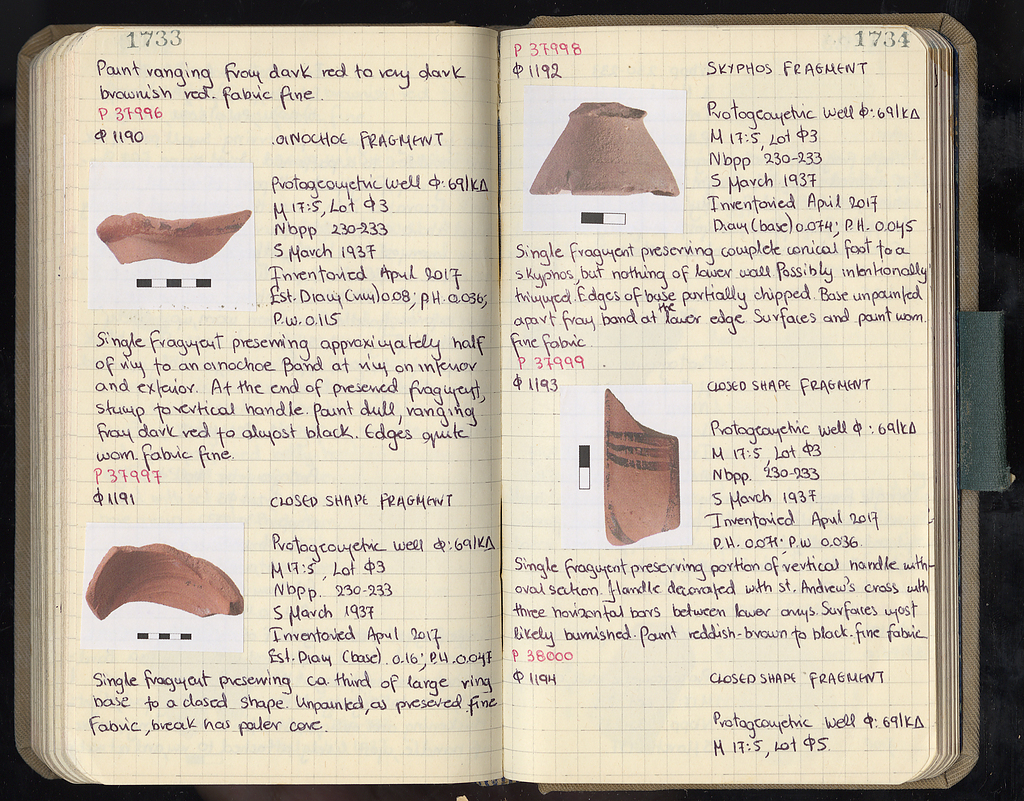 1733
Paint ranging from dark red to very dark
brownish red. Fabric fine.
P 37996
Φ 1190
OINOCHOE FRAGMENT
Protogeometric well Φ:69/ΚΔ
M 17:5, Lot Φ3
Nbpp 230-233
5 March 1937
Inventoried April 2017
Est. Diam (rim) 0.08; P.H. 0.036;
P.W. 0.115
Single fragment preserving approximately half
of rim to an oinochoe Band at rim on interior
and exterior. At the end of preserved fragment,
stump to vertical handle. Paint dull, ranging
from dark red to almost black. Edges quite
worn. Fabric fine.
P 37997
Φ 1191
CLOSED SHAPE FRAGMENT
Protogeometric well Φ:69/ΚΔ
M 17:5, Lot Φ3
Nbpp. 230-233
5 March 1937
Inventoried April 2017
Est. Diam (base). 0.16; P.H. 0.047
Single fragment preserving ca. third of large ring
base to a closed shape. Unpainted, as preserved. Fine
Fabric, break has paler core.
1734
P 37998
Φ 1192
SKYPHOS FRAGMENT
Protogeometric well Φ:69/ΚΔ
M 17:5, Lot Φ3
Nbpp 230-233
5 March 1937
Inventoried April 2017
Diam (base) 0.074; P.H. 0.045
Single fragment preserving complete conical foot to a
skyphos, but nothing of lower wall. Possibly intentionally
trimmed. Edges of base partially chipped. Base unpainted
apart from band at the lower edge Surfaces and paint worn.
Fine fabric.
P 37999
Φ 1193
CLOSED SHAPE FRAGMENT
Protogeometric well Φ:69/ΚΔ
M 17:5, Lot Φ3
Nbpp. 230-233
5 March 1937
Inventoried April 2017
P.H. 0.071; P.W 0.036.
Single fragment preserving portion of vertical handle with
oval section. Handle decorated with St. Andrew's cross with
three horizontal bars between lower arms. Surfaces most
likely burnished. Paint reddish-brown to black. Fine fabric
P 38000
Φ 1194
CLOSED SHAPE FRAGMENT
Protogeometric well Φ:69/ΚΔ
M 17:5, Lot Φ5.